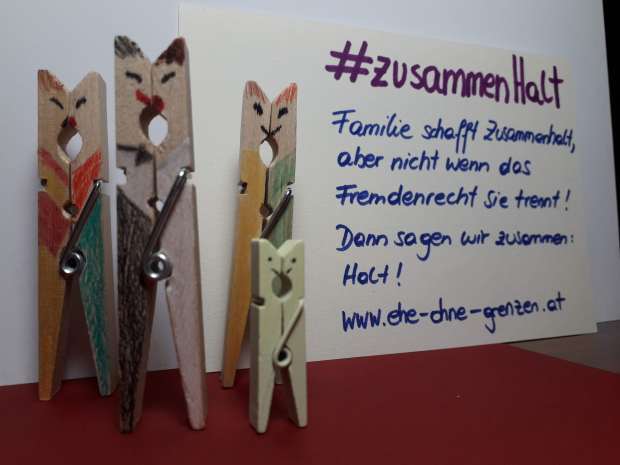 #zusammenHalt
Familie schafft Zusammenhalt,
aber nicht wenn das
Fremdenrecht sie trennt!
Dann sagen wir zusammen:
Halt!
www.ehe-ohne-grenzen.at